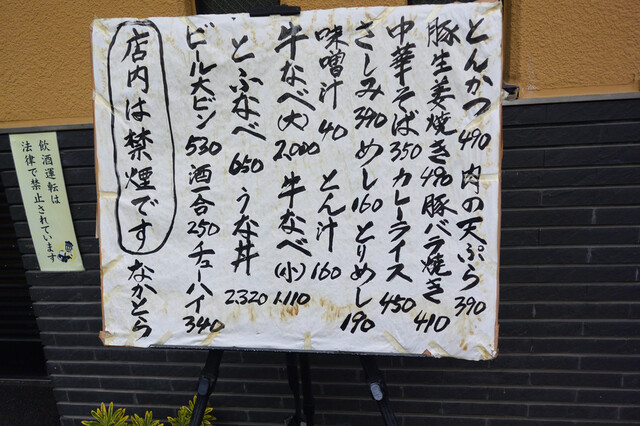 とんかつ 490 肉の天ぷら 390
豚生姜焼き 490 豚バラ焼き 410
中華そば 350 カレーライス 450
さしみ 390 めし 160 とりめし 190
味噌汁 40 とん汁 160
牛なべ(大) 2,000 牛なべ(小) 1.110
とふなべ 650 うな丼 2.320
ビール大ビン 530 酒一合 250 チューハイ 340
店内は禁煙です なかとら
飲酒運転は
法律で禁止されています